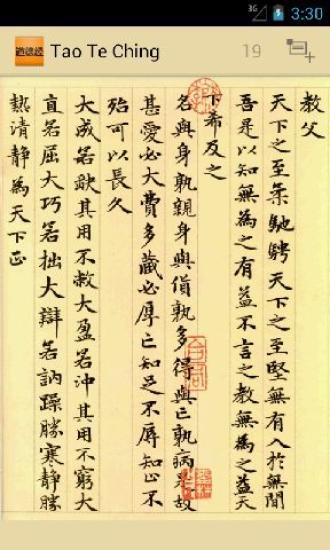 3G 3:30
道德经 Tao Te Ching 19
教父
天下之至柔馳騁天下之至堅無有入於無間
吾是以知無為之有益不言之教無為之益天
下希及之
名與身孰親身與貨孰多得與亡孰病是故
甚愛必大費多藏必厚亡知足不辱知止不
殆可以長久
大成若缺其用不敝大盈若沖其用不窮大
直若屈大巧若拙大辯若訥躁勝寒靜勝
熱清靜為天下正